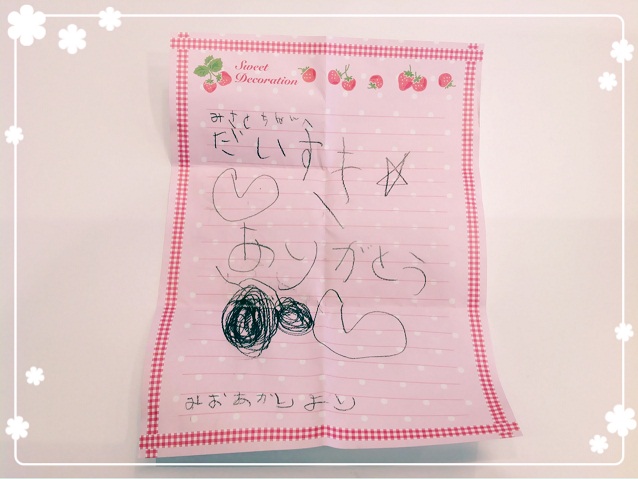 Sweet
Decoration
みさとちゃんへ
だいすき
ありがとう
みおあかりより